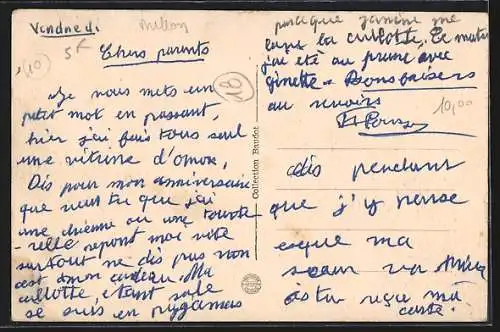 Vendredi
5F
(10)
Chers parents
Je vous mets un
petit mot en passant,
hier j'ai fais tous seul
une vitrine d'omon,
Dis pour mon anniversaire
que veut tu que j'ai
une chienne ou une tourte
-relle repont moi vite
surtout ne dis pas non
est mon cadeau. Ma
culotte, etant sale
je suis en pygamas
parceque Janine me
lave la culotte, Ce matin
j'ai été au prume avec
ginette - Bons baisers
au revoirs
(10)
10,00
Collection Baudot
dis pendant
que j'y pense
esque ma
soeur va
as tu reçu ma
carte.